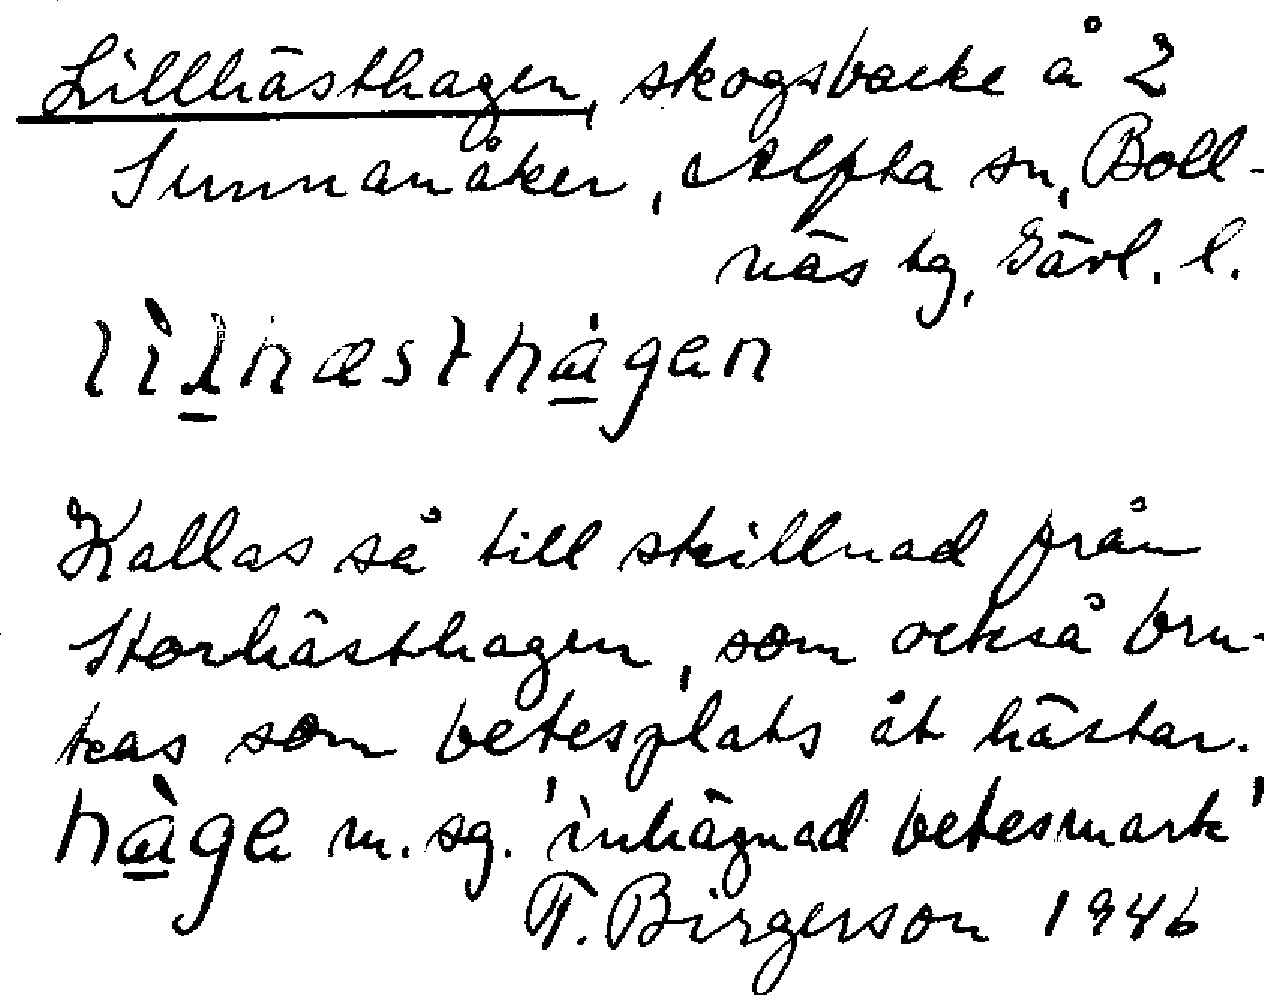 Lillhästhagen, skogsbacke å 2
Sunnanåker, Alfta sn, Boll-
näs tg, Gävl. l.
lìlhæstha̱gen
Kallas så till skillnad från
Storhästhagen, som också bru-
kas som betesplats åt hästar.
hà̱ge m. sg. 'inhägnad betesmark'
T. Birgerson 1946